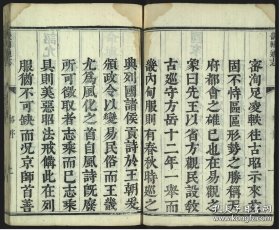 審洵足凌軼往古昭示來茲
固不恃區區形勢之勝稱天
府都會之雄已也在易觀之
象曰先王以省方觀民設敎
古巡守方岳十二年一舉而
畿內甸服則有春秋時巡之
典列國諸侯貢詩於王朝爰
頒政令以變易民俗而王畿
尤爲風化之首自風詩旣廢
所可徵取者志乘而已志乘
具則美惡昭法戒備此在列
服猶不可缺而况京師首善